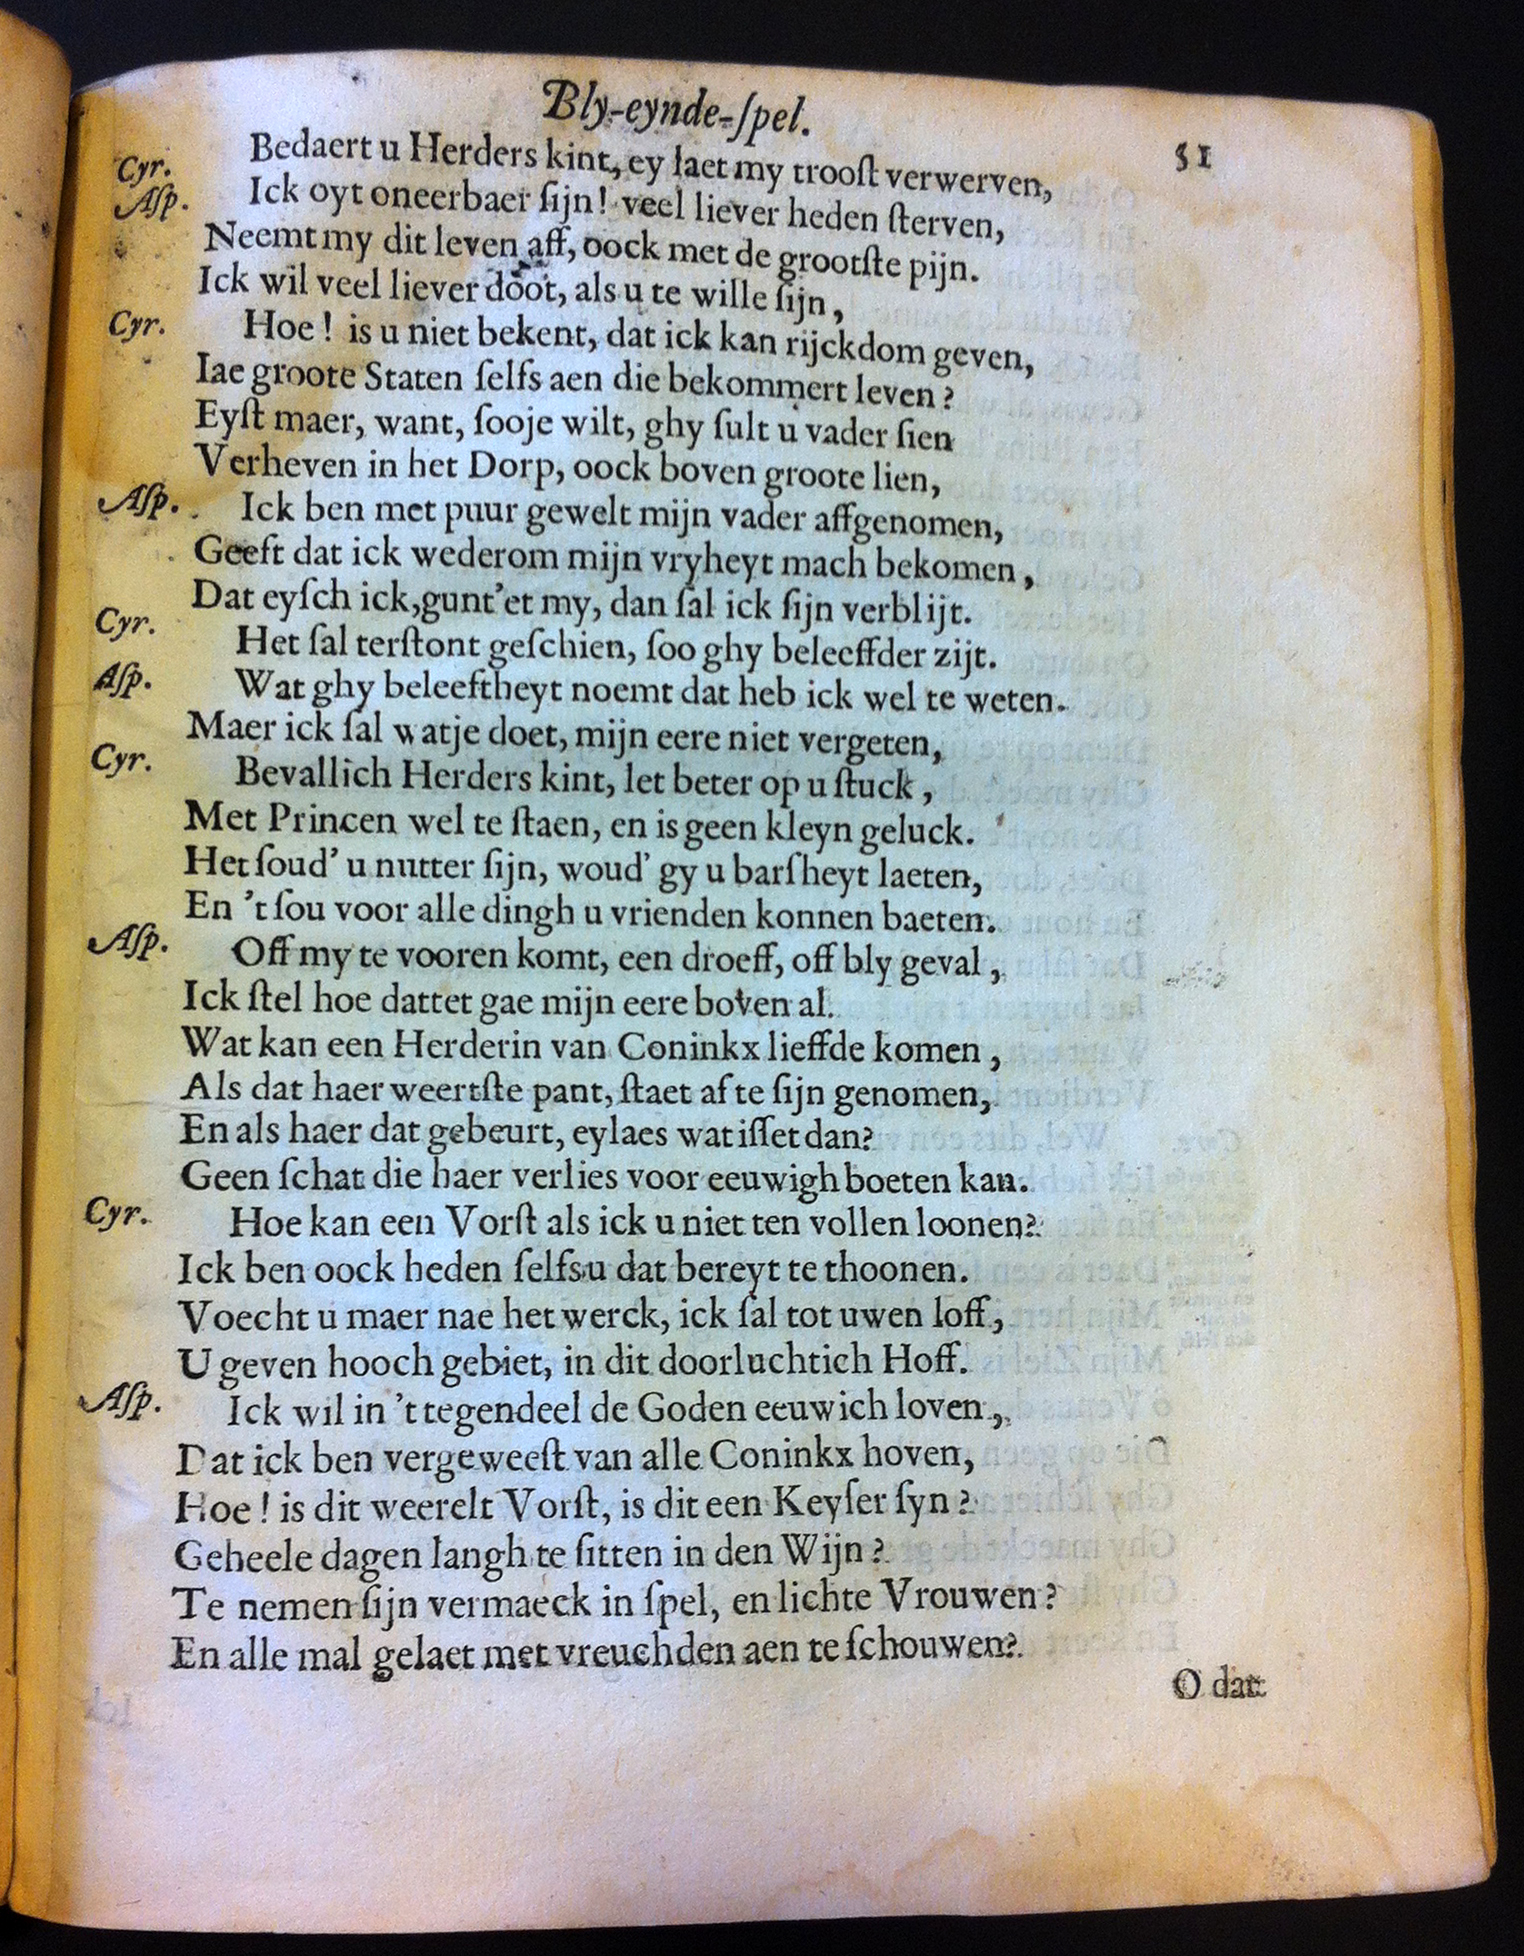 Bly-eynde-ſpel.
51
Cyr. Bedaert u Herders kint, ey laet my trooſt verwerven,
Aſp. Ick oyt oneerbaer ſijn! veel liever heden ſterven,
Neemt my dit leven aff, oock met de grootſte pijn.
Ick wil veel liever doot, als u te wille ſijn,
Cyr. Hoe! is u niet bekent, dat ick kan rijckdom geven,
Iae groote Staten ſelfs aen die bekommert leven?
Eyſt maer, want, ſooje wilt, ghy ſult u vader ſien
Verheven in het Dorp, oock boven groote lien,
Aſp. Ick ben met puur gewelt mijn vader affgenomen,
Geeft dat ick wederom mijn vryheyt mach bekomen,
Dat eyſch ick, gunt'et my, dan ſal ick ſijn verblijt.
Cyr. Het ſal terſtont geſchien, ſoo ghy beleeffder zijt.
Aſp. Wat ghy beleeftheyt noemt dat heb ick wel te weten.
Maer ick ſal watje doet, mijn eere niet vergeten,
Cyr. Bevallich Herders kint, let beter op u ſtuck,
Met Princen wel te ſtaen, en is geen kleyn geluck.
Het ſoud' u nutter ſijn, woud' gy u barſheyt laeten,
En 't ſou voor alle dingh u vrienden konnen baeten.
Aſp. Off my te vooren komt, een droeff, off bly geval,
Ick ſtel hoe dattet gae mijn eere boven al.
Wat kan een Herderin van Coninkx lieffde komen,
Als dat haer weertſte pant, ſtaet af te ſijn genomen,
En als haer dat gebeurt, eylaes wat iſſet dan?
Geen ſchat die haer verlies voor eeuwigh boeten kan.
Cyr. Hoe kan een Vorſt als ick u niet ten vollen loonen?
Ick ben oock heden ſelfs u dat bereyt te thoonen.
Voecht u maer nae het werck, ick ſal tot uwen loff,
U geven hooch gebiet, in dit doorluchtich Hoff.
Aſp. Ick wil in 't tegendeel de Goden eeuwich loven,
Dat ick ben vergeweeſt van alle Coninkx hoven,
Hoe! is dit weerelt Vorſt, is dit een Keyſer ſyn?
Geheele dagen langh te ſitten in den Wijn?
Te nemen ſijn vermaeck in ſpel, en lichte Vrouwen?
En alle mal gelaet met vreuchden aen te ſchouwen?
O dat